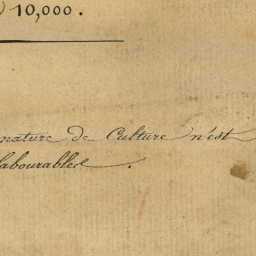 10,000.
nature de Culture n'est
labourables.